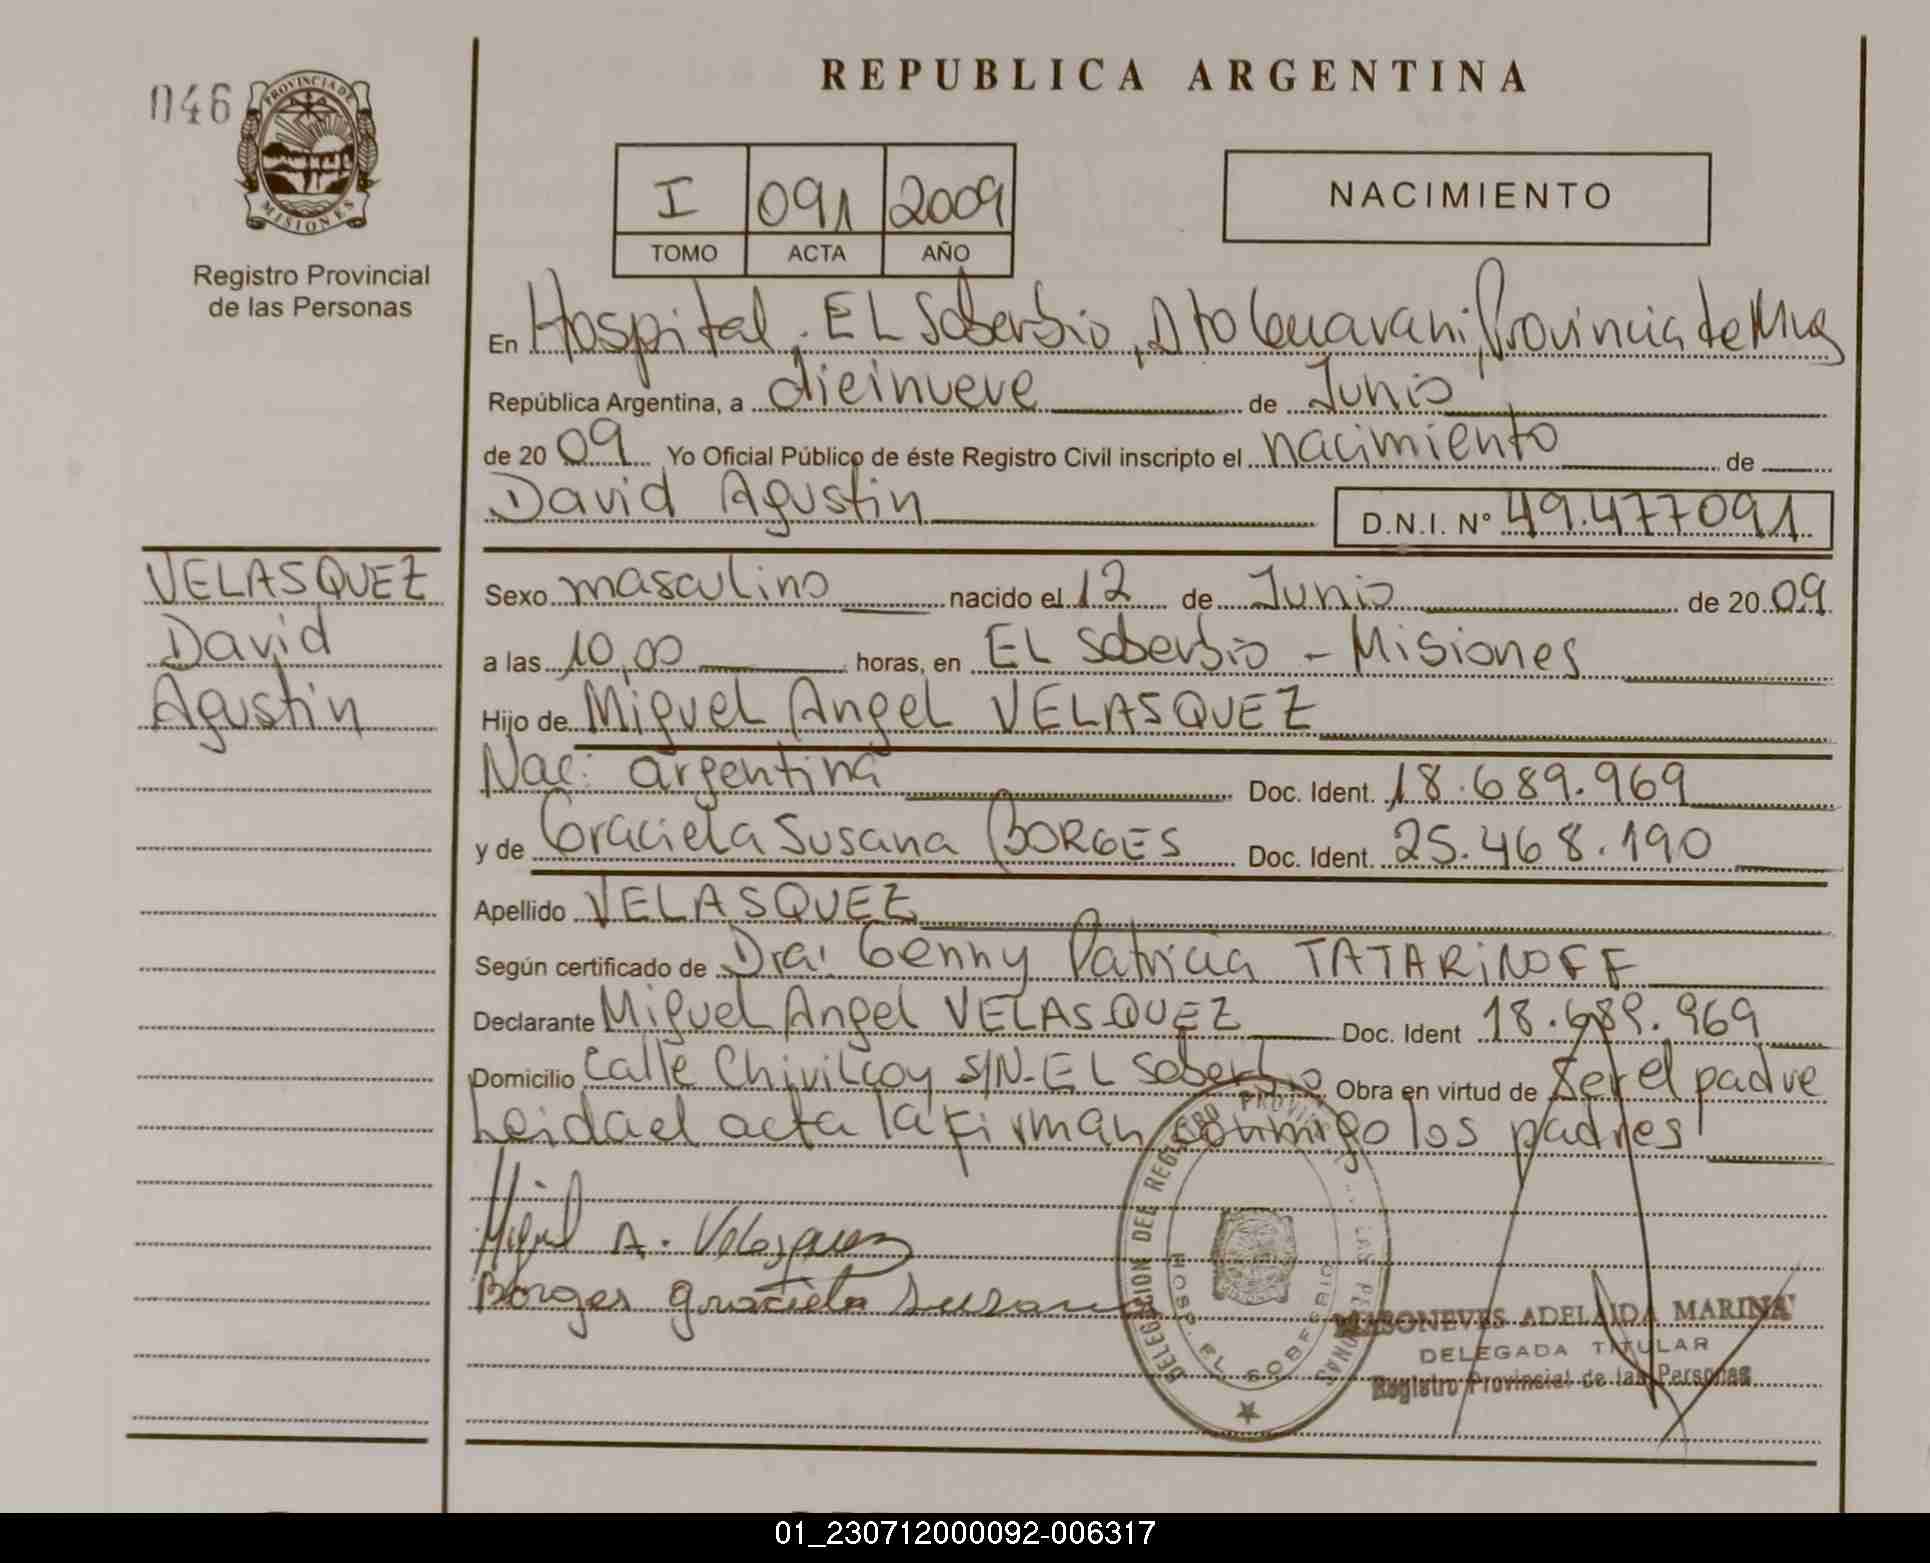 046
PROVINCIA DE
MISIONES
Registro Provincial
de las Personas
REPUBLICA ARGENTINA
I 091 2009
TOMO ACTA AÑO
NACIMIENTO
En Hospital. EL Soberbio, Dto Guarani, Provincia de Mnes
República Argentina, a dieinueve de Junio
de 2009 Yo Oficial Público de éste Registro Civil inscripto el nacimiento de
David Agustin D.N.I. N° 49.477091
VELASQUEZ
David
Agustin
Sexo masculino nacido el 12 de Junio de 2009
a las 10,00 horas, en EL Soberbio - Misiones
Hijo de Miguel Angel VELASQUEZ
Nac: argentina Doc. Ident. 18.689.969
y de Graciela Susana BORGES Doc. Ident. 25.468.190
Apellido VELASQUEZ
Según certificado de Dra: Genny Patricia TATARiNOFF
Declarante Miguel Angel VELASQUEZ Doc. Ident 18.689.969
Domicilio Calle Chivilcoy S/N-EL Soberbio Obra en virtud de Ser el padre
Leida el acta la firman conmigo los padres
Miguel A. Velasquez
Borges graciela susana
DELEGACION DEL REGISTRO PROVINCIAL LAS PERSONAS
HOSP. EL SOBERBIO
ADELAIDA MARINA
DELEGADA TITULAR
Registro Provincial de las Personas
01_230712000092-006317